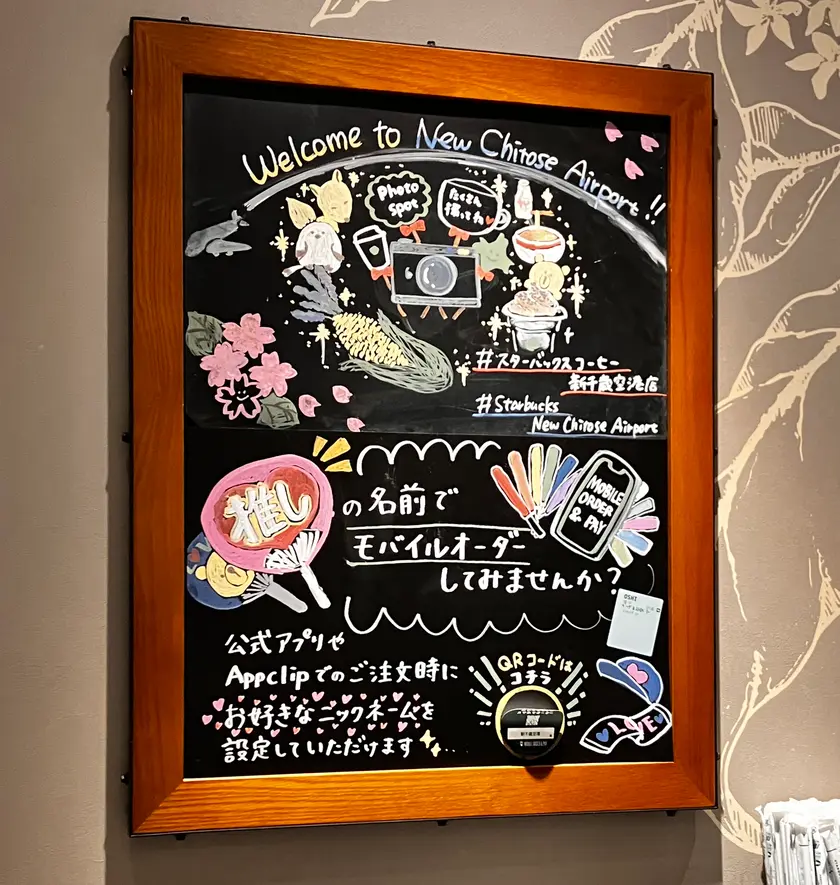 Welcome to New Chitose Airport!!
Photo
spot
たくさん
撮ってね
#スターバックスコーヒー
新千歳空港店
#Starbucks
New Chitose Airport
推し
の名前で
モバイルオーダー
してみませんか?
MOBILE
ORDER
& PAY
OSHI
公式アプリや
Appclipでのご注文時に
お好きなニックネームを
設定していただけます
QRコードは
コチラ
LOVE